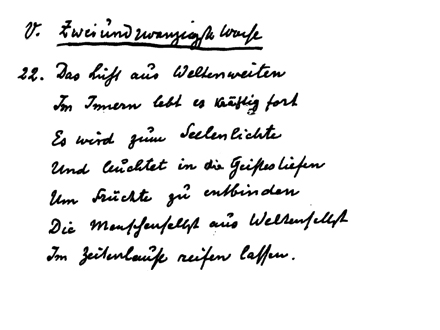 V. Zweiundzwanzigste Woche
22. Das Licht aus Weltenweiten
Im Innern lebt es kräftig fort
Es wird zum Seelenlichte
Und leuchtet in die Geistestiefen
Um Früchte zu entbinden
Die Menschenselbst aus Weltenselbst
Im Zeitenlaufe reifen lassen.